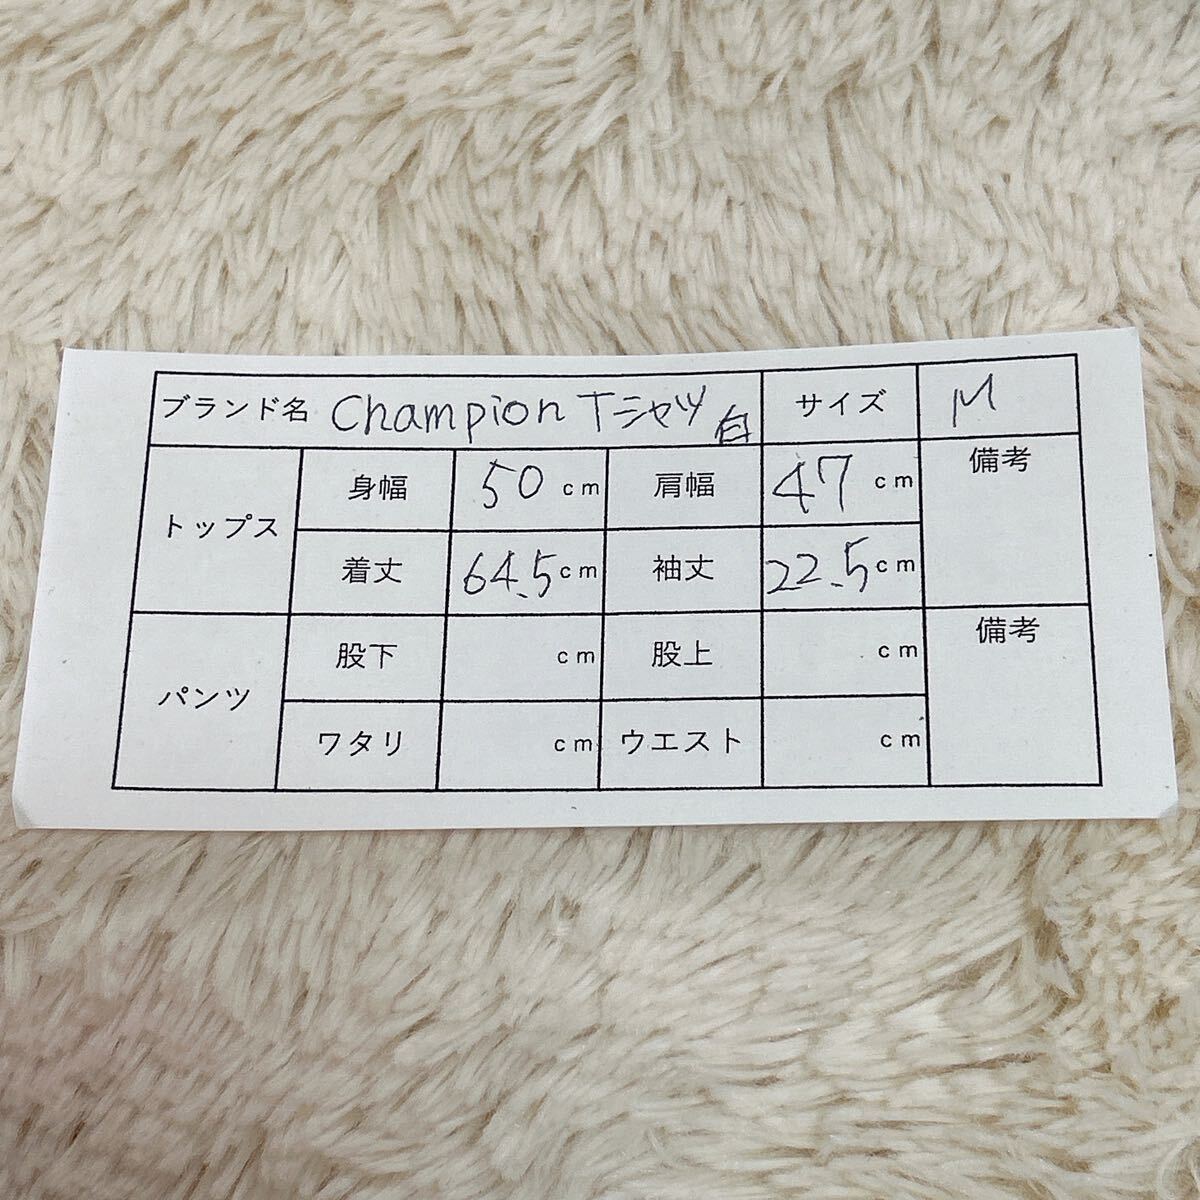 ブランド名 Champion Tシャツ 白 サイズ M
トップス 身幅 50 cm 肩幅 47 cm 備考
着丈 64.5 cm 袖丈 22.5 cm
パンツ 股下 cm 股上 cm 備考
ワタリ cm ウエスト cm